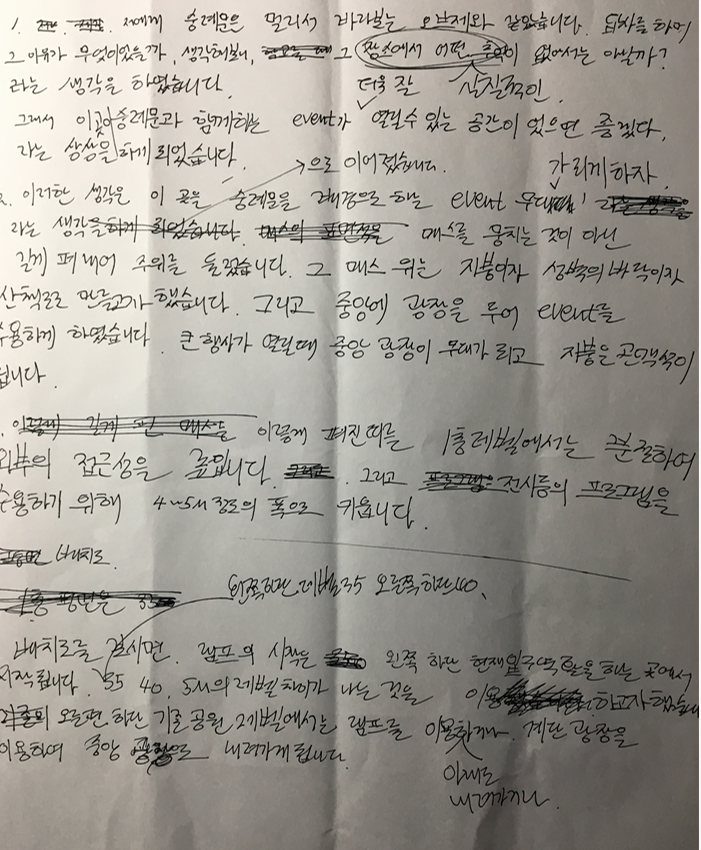 1. 저에게 숭례문은 멀리서 바라보는 오브제와 같았습니다. 답사를 하며
그 이유가 무엇이었을까, 생각해보니, 그 장소에서 어떤 이 없어서는 아닐까?
라는 생각을 하였습니다. 더욱 잘 실질적인
그래서 이곳이 숭례문과 함께하는 event가 열릴 수 있는 공간이 었으면 좋겠다,
라는 상상을 하게 되었습니다. 으로 이어졌습니다. 가리게 하자.
2. 이러한 생각은 이 곳을 숭례문을 배경으로 하는 event 무대
라는 생각을 하게 되었습니다. 매스의 표면적을 매스를 뭉치는 것이 아닌
길게 펴내어 주위를 둘렀습니다. 그 매스 위는 지붕이자 성벽의 바닥이자
산책로로 만들고자 했습니다. 그리고 중앙에 광장을 두어 event를
수용하게 하였습니다. 큰 행사가 열릴때 중앙 광장이 무대가 되고 지붕은 관객석이
됩니다.
이렇게 길게 편 매스를 이렇게 펴진 띠를 1층레벨에서는 분절하여
외부의 접근성을 높입니다. 그리고 프로그램은 전시등의 프로그램을
수용하기 위해 4~5M 정도의 폭으로 키웁니다.
배치도.
1층 평면은 35 왼쪽하단 레벨35 오른쪽하단40.
배치도를 보시면 램프의 시작은 왼쪽 하단 현재 입구역할을 하는 곳에서
시작됩니다. 35 40. 5M의 레벨차이가 나는 것을 이용 하고자 했습니
오른편 하단 기존 공원 레벨에서는 램프를 이용하거나 계단 광장을
이용하여 중앙 광장으로 내려가게 됩니다.
아래로
내려가거나